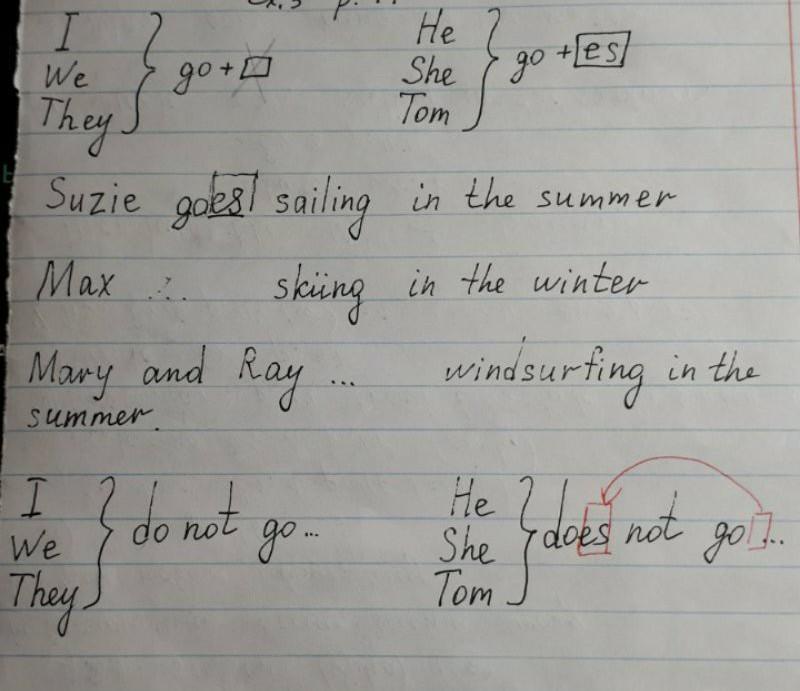 Ex. 3 p.
I
We
They
go +
He
She
Tom
go + es
Suzie goes sailing in the summer
Max ... skiing in the winter
Mary and Ray ... windsurfing in the
summer.
I
We
They
do not go...
He
She
Tom
does not go...